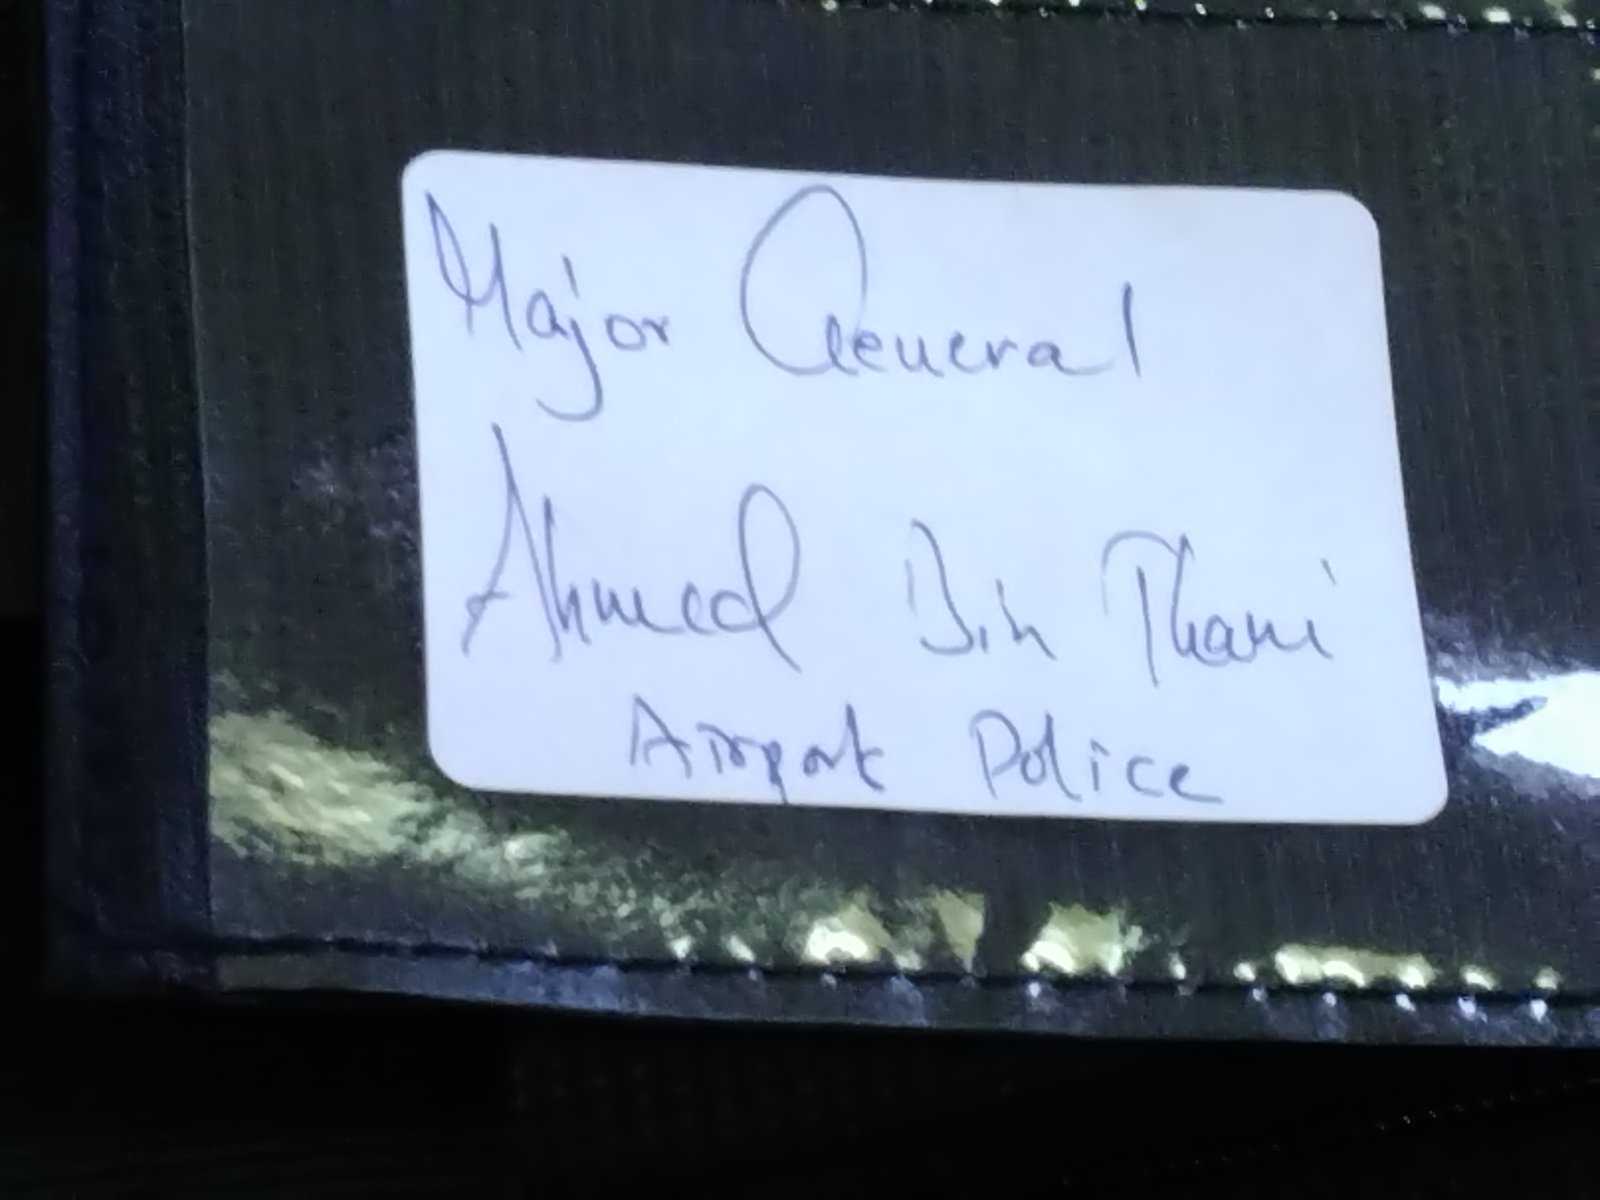 Major General
Ahmed Bin Thani
Airport Police